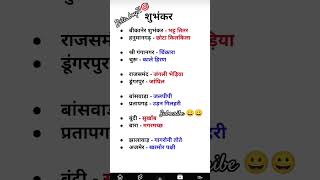 शुभंकर
• बीकानेर शुभंकर - भट्ट तितर
हनुमानगढ़ - छोटा किलकिला
• श्री गंगानगर - चिंकारा
• चुरू - काले हिरण
• राजसमंद - जंगली भेड़िया
• डूंगरपुर - जांघिल
• बांसवाड़ा - जलपीपी
• प्रतापगढ़ - उड़न गिलहरी
• बूंदी - सुर्खाब
• बारा - मगरमच्छ
• झालावाड़ - गागरोनी तोते
• अजमेर - खरमोर पक्षी
Subscribe 😀😀
राजसमं
डूंगरपुर
बांसवाड़
प्रतापग
ibe 😀😀